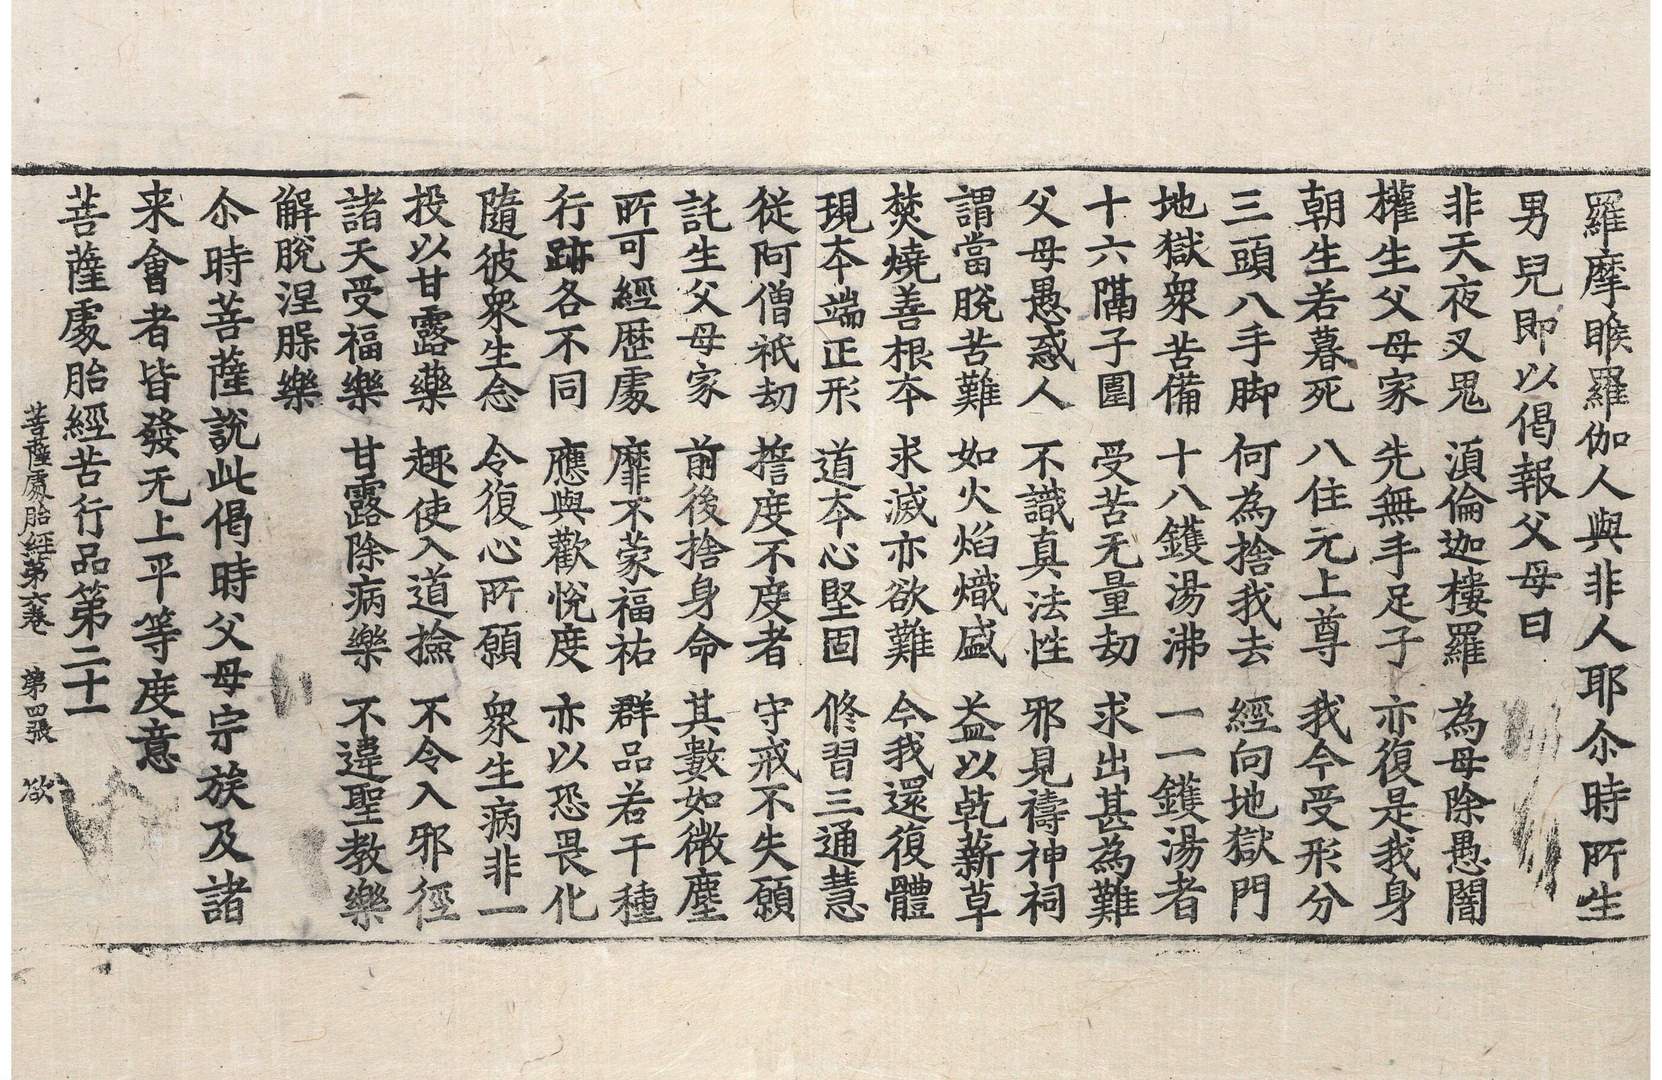 羅摩睺羅伽人與非人耶尒時所生
男兒即以偈報父母曰
非天夜叉鬼 湏倫迦樓羅 為母除愚闇
權生父母家 先無手足子 亦復是我身
朝生若暮死 八住无上尊 我今受形分
三頭八手脚 何為捨我去 經向地獄門
地獄衆苦備 十八鑊湯沸 一一鑊湯者
十六隔子圍 受苦无量劫 求出甚為難
父母愚惑人 不識真法性 邪見禱神祠
謂當脫苦難 如火焰熾盛 益以乾薪草
焚燒善根夲 求滅亦欲難 今我還復體
現夲端正形 道夲心堅固 修習三通慧
從阿僧祇劫 擔度不度者 守戒不失願
託生父母家 前後捨身命 其數如微塵
所可經歷處 靡不蒙福祐 群品若干種
行跡各不同 應與歡悅度 亦以恐畏化
隨彼衆生念 令復心所願 衆生病非一
投以甘露藥 趣使入道撿 不令入邪徑
諸天受福樂 甘露除病樂 不違聖教樂
解脫涅槃樂
尒時菩薩說此偈時父母宗族及諸
来會者皆發无上平等度意
菩薩處胎經苦行品第二十一
菩薩處胎經第六卷 第四張 欲